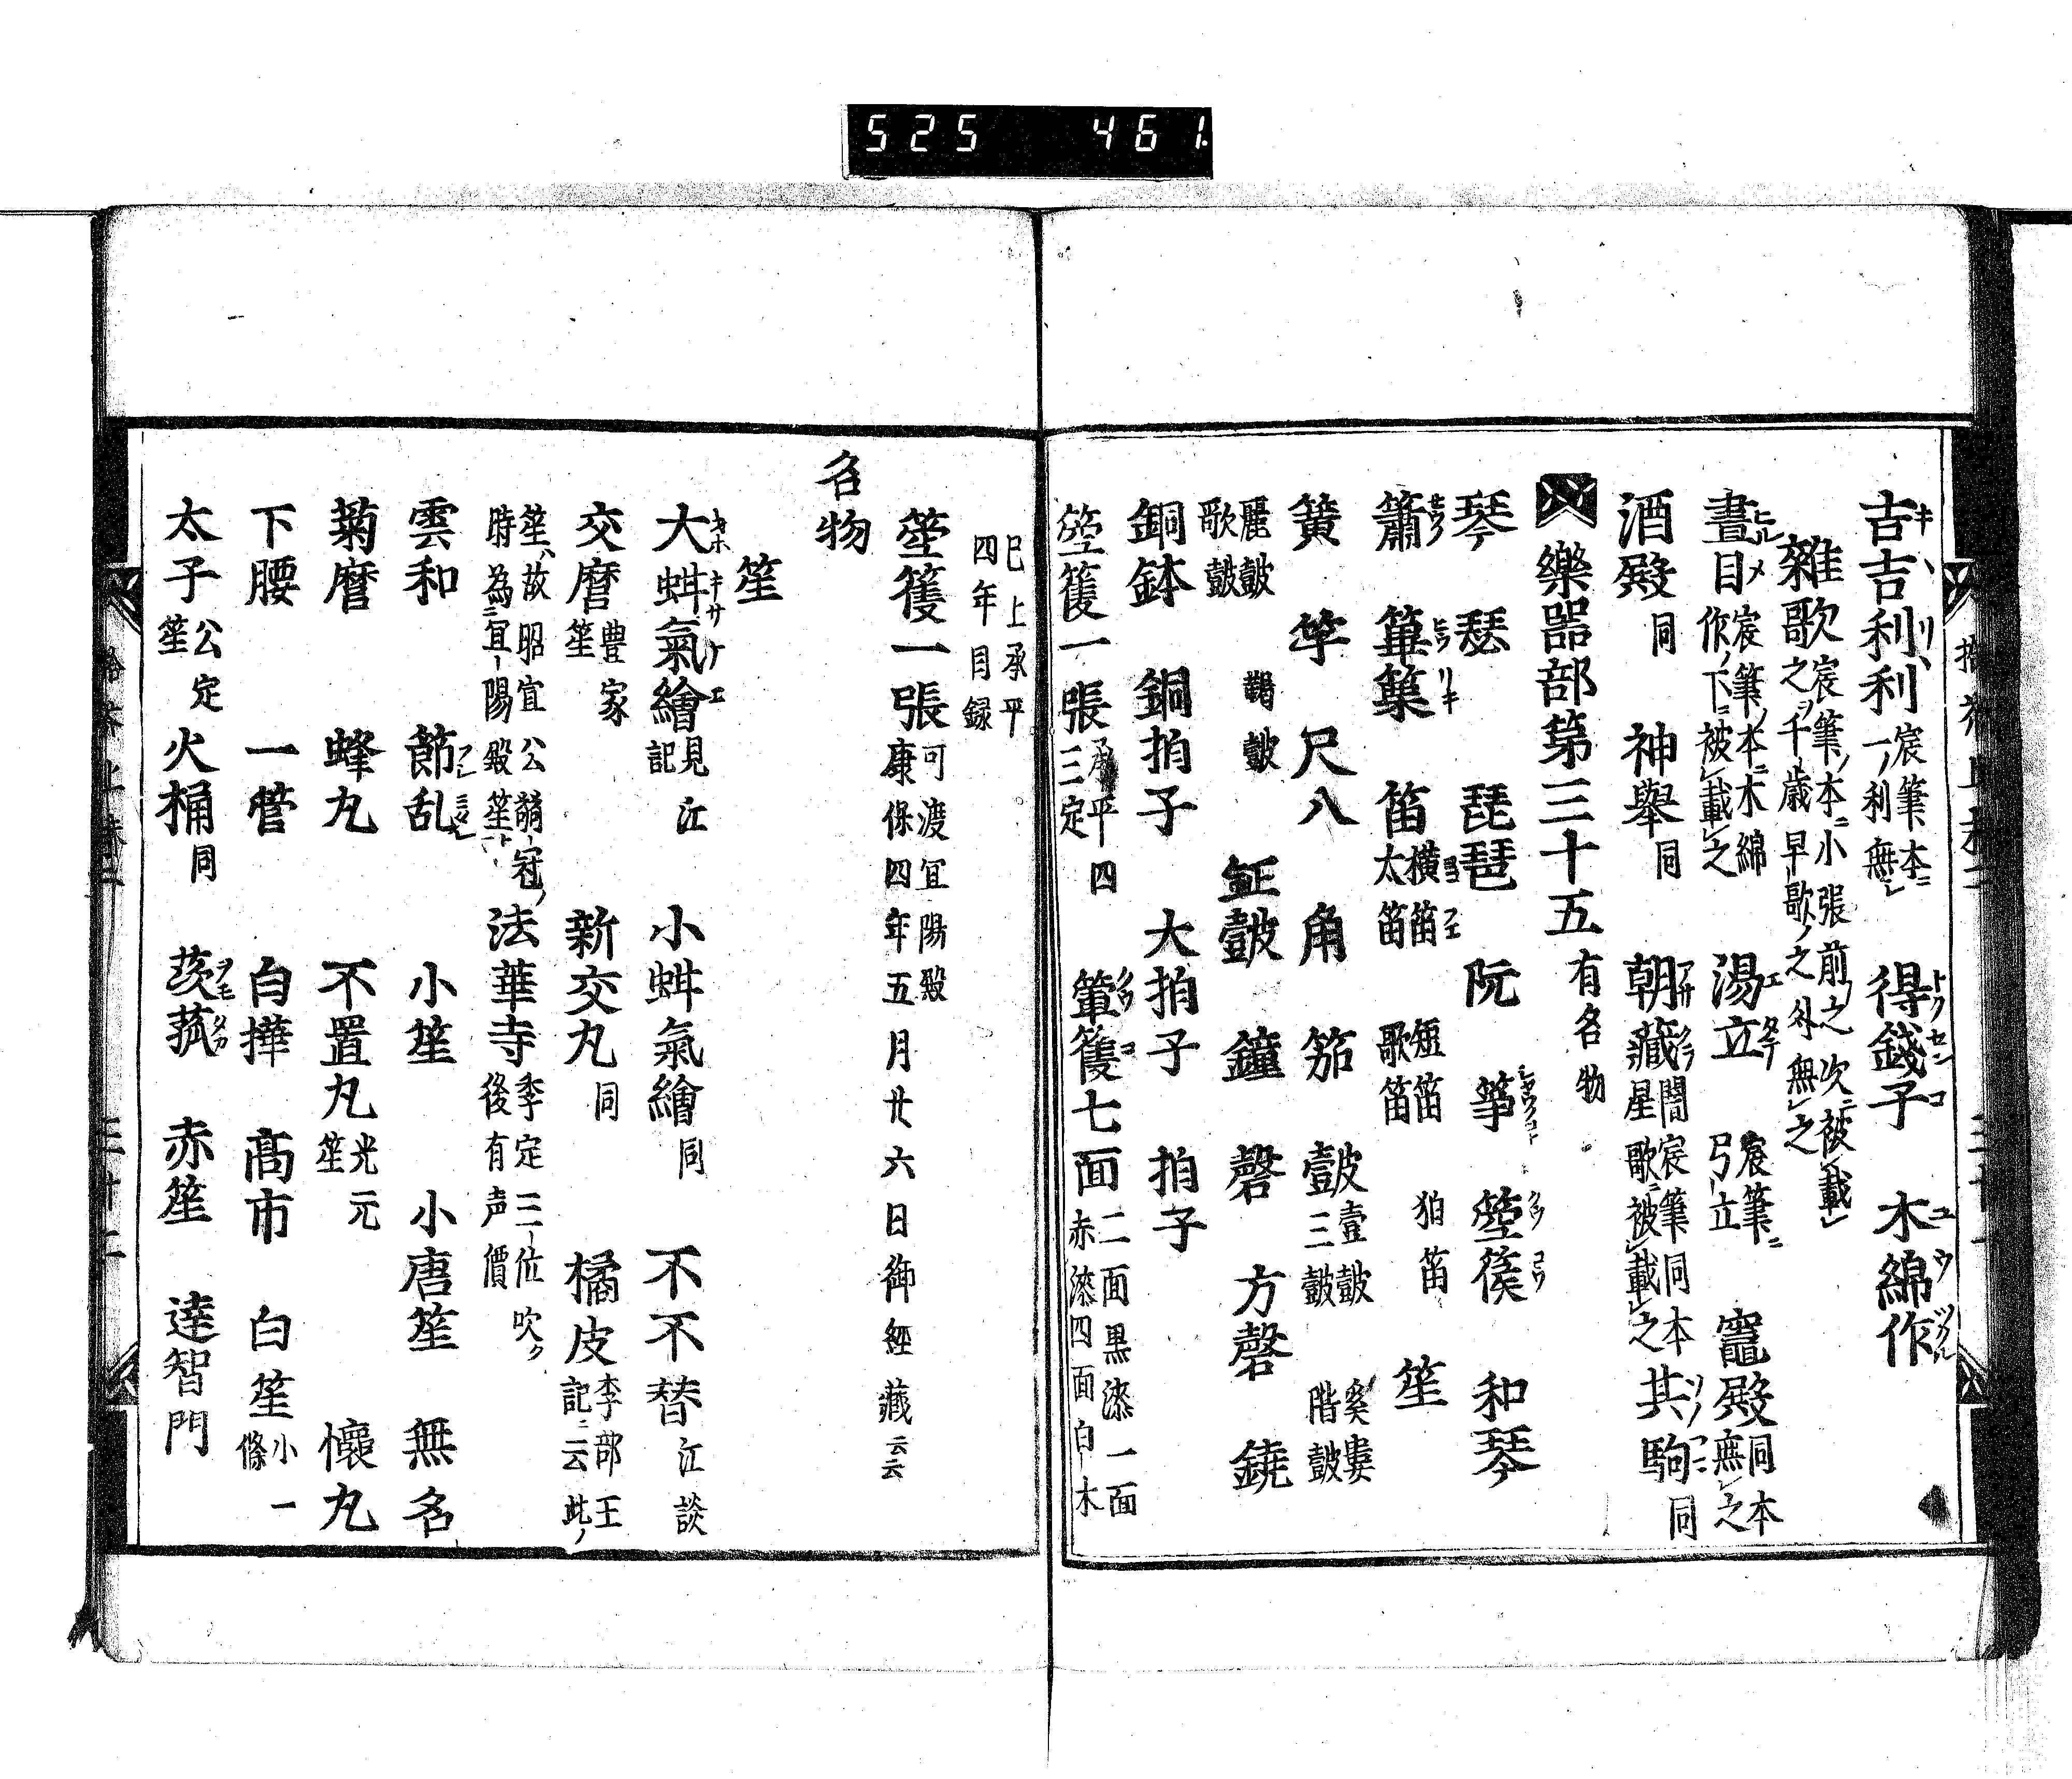 525 461.
吉吉利利 宸筆本ニ一ノ利無レ 得錢子 木綿作
雜歌 宸筆ノ本ニ小張前ノ之次ニ被レ載レ之ヲ千歳早歌ノ之外無レ之
晝目 宸筆ノ本ニ木綿作ノ下ニ被レ載レ之 湯立 宸筆ニ弓立 竈殿 同本無レ之
酒殿 同 神舉 同 朝藏 宸筆同本星歌ニ被レ載レ之 其駒 同
樂器部第三十五 有名物
琴 瑟 琵琶 阮 箏 箜篌 和琴
簫 篳篥 笛 横笛 太笛 短笛 歌笛 狛笛 笙
簧 竽 尺八 角 笳 鼓 壹鼓 三鼓 奚婁 階鼓
麗鼓 歌鼓 鞨鼓 鉦鼓 鐘 磬 方磬 鐃
銅鉢 銅拍子 大拍子 拍子
箜篌一張 承平四三定 篳篌七面 二面黒漆一面赤漆四面白木
已上承平四年目録
箜篌一張 可渡宜陽殿康保四年五月廿六日御經藏云云
名物
笙
大蚶氣繪 見江記 小蚶氣繪 同 不不替 江談
交麿 豊家笙 新交丸 同 橘皮 李部王記ニ云此ノ
笙ハ故昭宜公 冠ノ時為ニ宜陽殿笙ト 法華寺 季定三位吹ク後有声價
雲和 節乱 小笙 小唐笙 無名
菊麿 蜂丸 不置丸 光元笙 懷丸
下腰 一管 白樺 髙市 白笙 小一條
太子 公定笙 火桶 同 赤笙 達智門